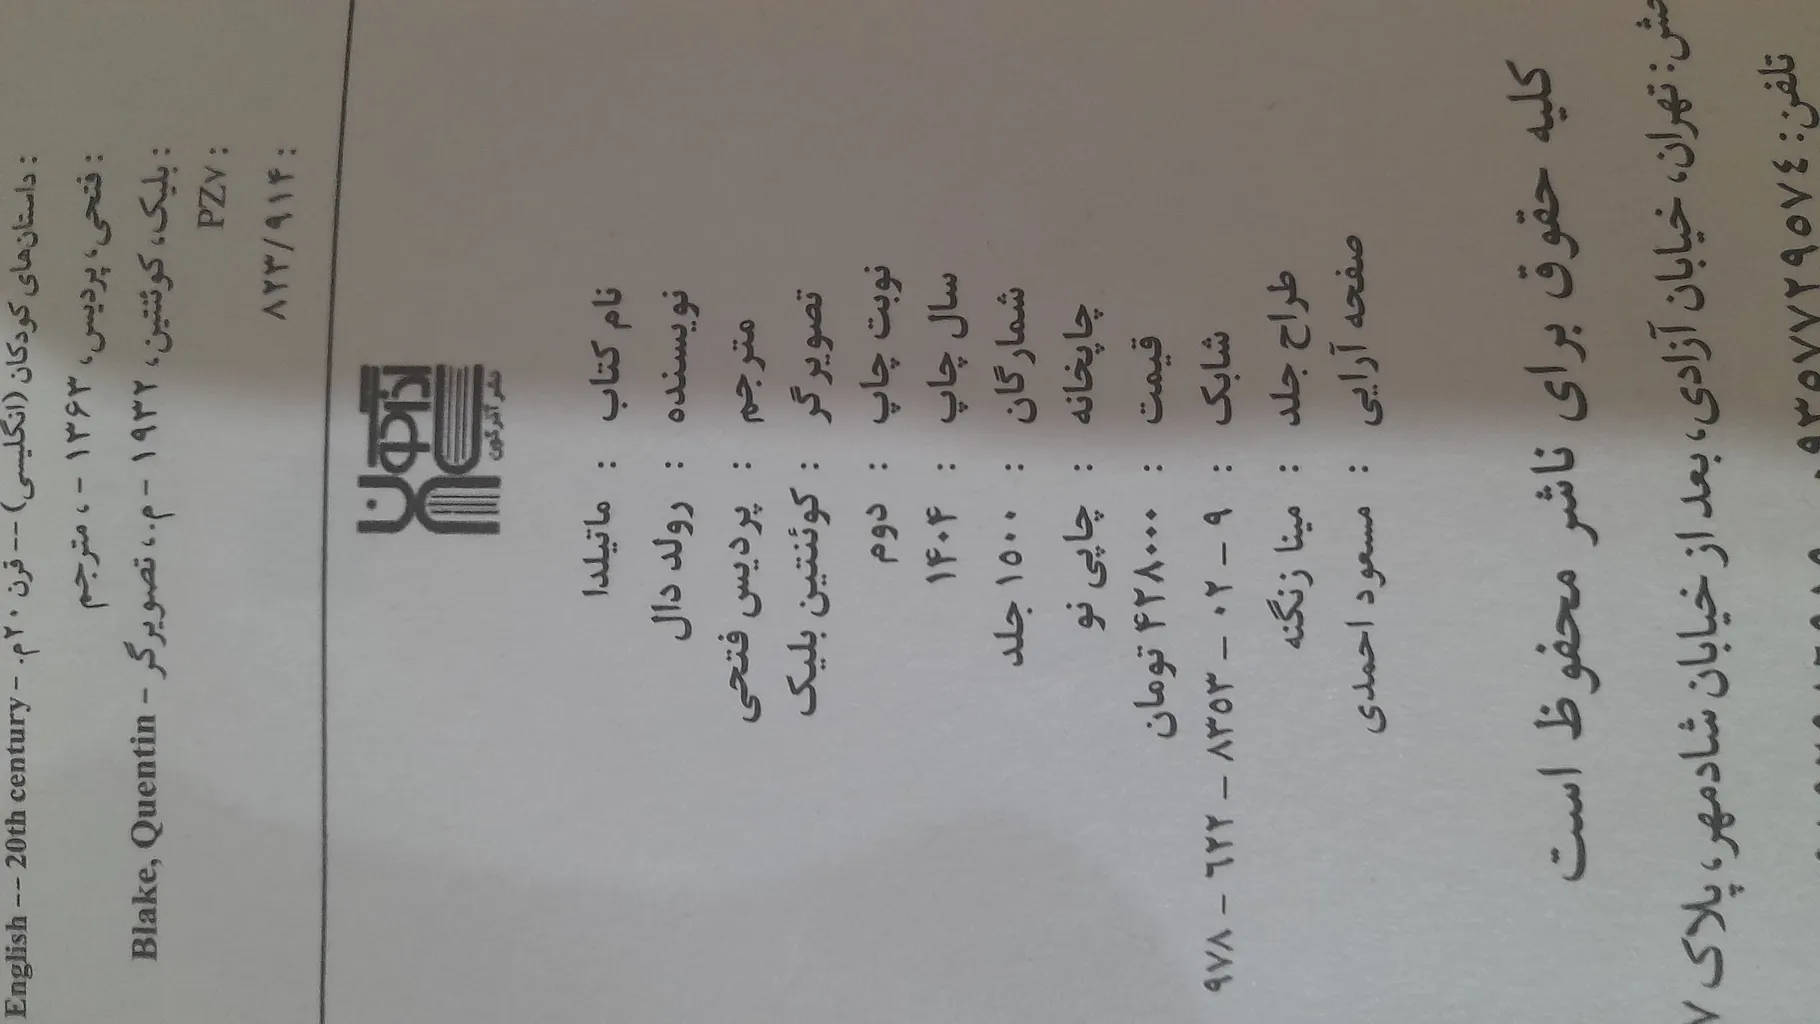 : داستان‌های کودکان (انگلیسی) -- قرن ۲۰م. -
English -- 20th century
: فتحی، پردیس، ۱۳۶۳ - ، مترجم
: بلیک، کوئنتین، ۱۹۳۲ - م.، تصویرگر - Blake, Quentin
: PZ۷
: ۸۲۳/۹۱۴
آذرگون
نشر آذرگون
نام کتاب : ماتیلدا
نویسنده : رولد دال
مترجم : پردیس فتحی
تصویرگر : کوئنتین بلیک
نوبت چاپ : دوم
سال چاپ : ۱۴۰۴
شمارگان : ۱۵۰۰ جلد
چاپخانه : چاپی نو
قیمت : ۴۲۸۰۰۰ تومان
شابک : ۹ - ۰۲ - ۸۳۵۳ - ۶۲۲ - ۹۷۸
طراح جلد : مینا زنگنه
صفحه آرایی : مسعود احمدی
کلیه حقوق برای ناشر محفوظ است
تهران، خیابان آزادی، بعد از خیابان شادمهر، پلاک
تلفن: